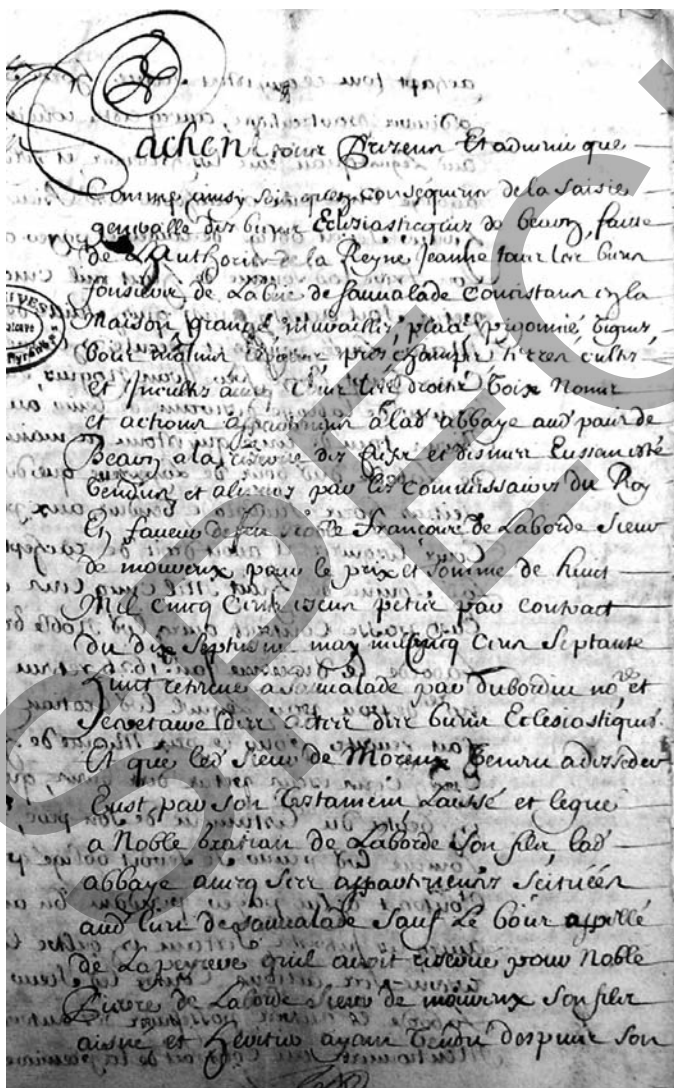 Sachen tous presens et advenir que
Comme ainsy soit qu'en consequence de la saisie
generalle des biens Eclesiasticques de bearn, faite
de L'authorité de la Reyne Jeanne tous les biens
de Labaie de sauvalade Concistans en la
Maison, grange, murailles, place, pigonnié, vignes,
bois moulins prés champs terres cultes
et Incultes avec tous les droits voix Noms
et actions appartenens a lad abbaye aud pais de
Bearn a la reserve des fiefs et dismes Eussent esté
Vendus et alienés par les Commissaires du Roy
En faveur de feu Noble Francois de Laborde sieur
de mouneux pour le prix et somme de huict
Mil cincq Cens escus petits par contract
du dix septiesme may mil cincq Cens septante
huict retenu a sauvalade par dubordiu nore et
Secretaire des actes des biens Eclesiastiques.
Et que led sieur de Moneux Veneu a desceder
Eust par son Testament Laissé et legué
a Noble bratian de Laborde son fils lad
abbaye avecq ses appartenens scituées
aud lieu de sauvalade sauf Le bois appellé
de Lapeyrere quil avoit reservé pour Noble
Pierre de Laborde sieur de mouneux son fils
aisne et heretier ayant Vendu despuis son
SPEC